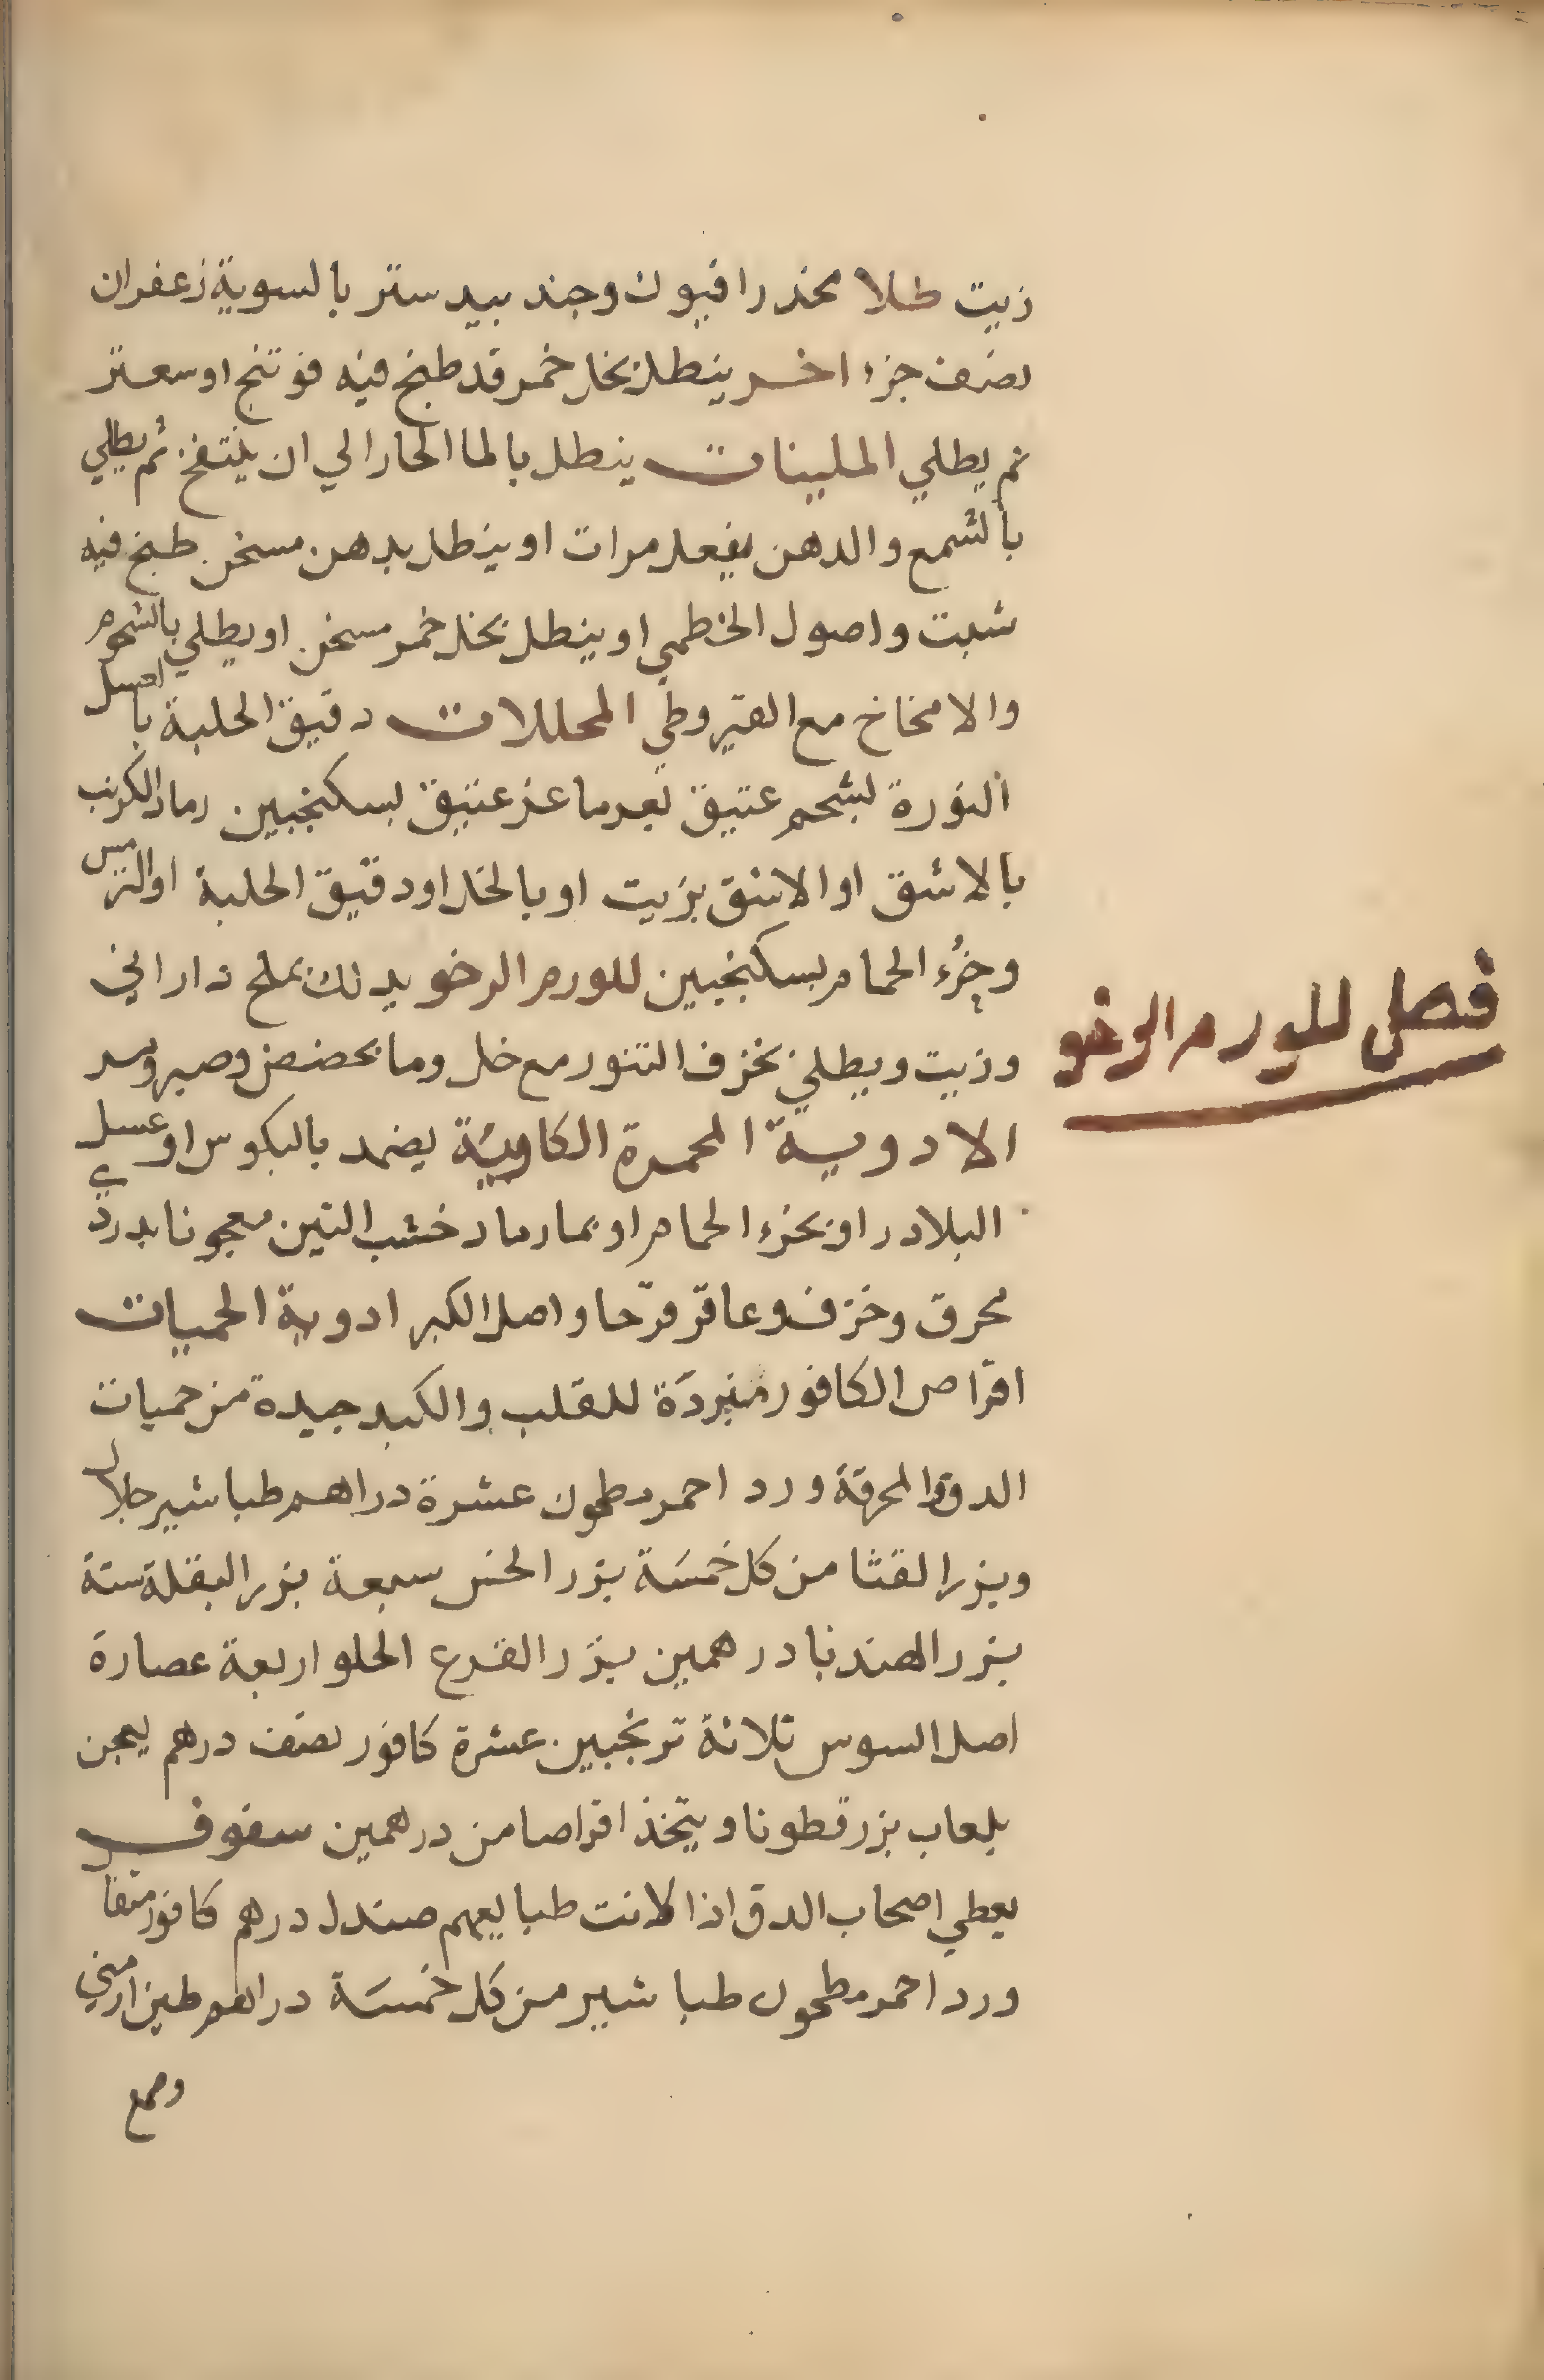 زيت طلا مخدر افيون وجند بيدستر بالسوية زعفران
نصف جزء اخر ينطل بخل خمر قد طبخ فيه فوتنج او سعتر
ثم يطلي الملينات ينطل بالما الحار الي ان ينتفخ ثم يطلي
بالشمع والدهن يفعل مرات او ينطل بدهن مسخن طبخ فيه
شبت واصول الخطمي او ينطل بخل خمر مسخن او يطلي بالشحوم
والامخاخ مع القيروطي المحللات دقيق الحلبة با
النورة بشحم عتيق بعرما عز عتيق بسكنجبين رماد الكرنب
بالاشق او الاشق بزيت او بالخل او دقيق الحلبة او الترمس
وخرء الحمام بسكنجبين للورم الرخو يدلك بملح داراني
فصل للورم الرخو
وزيت ويطلي بخزف التنور مع خل وما بحضض وصبر
الادوية المحمرة الكاوية يضمد بالبكوس او عسل
البلادر او بخرء الحمام او بما رماد خشب التين معجونا بدردي
محرق وخزف وعاقر قرحا واصل الكبر ادوية الحميات
اقراص الكافور مبردة للقلب والكبد جيدة من حميات
الدق والمحرقة ورد احمر مطحون عشرة دراهم طباشير جلال
وبزر القثا من كل خمسة بزر الخس سبعة بزر البقلة ستة
بزر الهندبا درهمين بزر القرع الحلو اربعة عصارة
اصل السوس ثلاثة ترنجبين عشرة كافور نصف درهم يعجن
بلعاب بزر قطونا ويتخذ اقراصا من درهمين سفوف
يعطي اصحاب الدق اذا لانت طبايعهم صندل درهم كافور مثقا
ورد احمر مطحون طباشير من كل خمسة دراهم طين ارمني
وصمغ